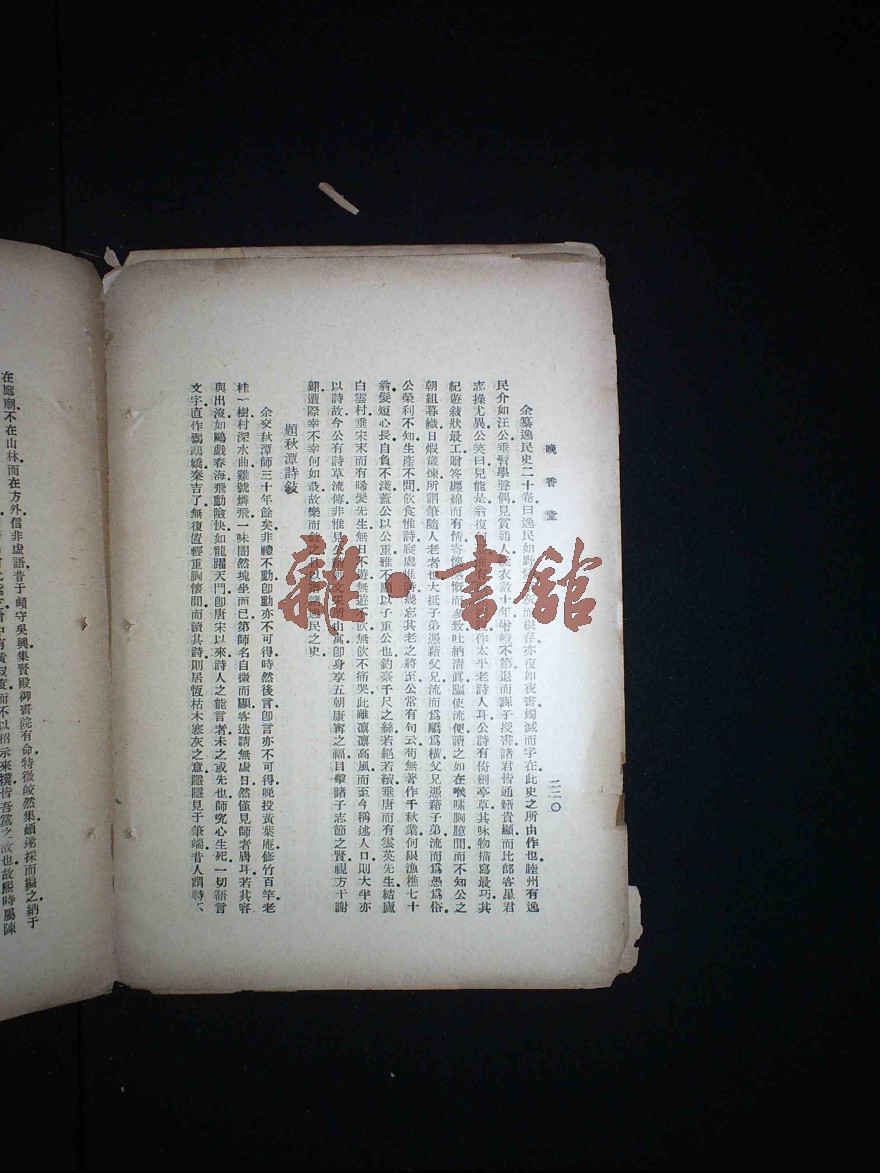 晚香堂
二二〇
余纂逸民史二十卷曰逸民如野
亦復如夜書燭滅而字在此史之所由作也睦州有逸
民介如汪公垂髫學聲偶見賞通人
不第退而課子授書諸君皆通籍貴顯而比部客星君
志操尤異公笑曰兒能是翁復
作太平老詩人耳公詩有倚劍亭草其咏物描寫最巧其
紀遊敍狀最工贈答纏綿而有情寄
吐納清眞驅使流便讀之如在喉咪胸臆間而不知公之
朝組暮織日煅歲煉所謂筆隨人老者也大抵子弟憑藉父兄流而爲驕爲橫父兄憑藉子弟流而爲愚爲俗
公榮利不知生產不問飲食惟詩
忘其老之將至公常有句云苟無著作千秋業何限漁樵七十
翁髮短心長自負不淺蓋公以公重雅不願以子重公也釣臺千尺之絲若絕若
垂唐而有雲英先生結廬
白雲村垂宋末而有晞髮先生無日不遊無遊不飲無飲不痛哭此雖凛凛高風而至今稱述人口則大半亦
以詩故今公有詩草流傳非惟見公
文采所由寓卽身享五朝康甯之福目擊諸子志節之賢視方干謝
翶遭際幸不幸何如哉故樂而敍之且以
諸逸民之史
題秋潭詩敍
余交秋潭師三十年餘矣非禮不動卽動亦不可得時然後言卽言亦不可得晚投黃葉庵修竹百竿老
桂一樹村深水曲雞號燐飛一味闇然塊坐而已第師名自微而顯客造請無虛日然僅見師者膚耳若其容
與出沒如鷗戲春海飛動險快如龍躍天門卽唐宋以來詩人之能言者未之或先也師究心生死一切語言
文字直作鸚鵡嬌秦吉了無復置輕重胸懷間而讀其詩則居恆枯木寒灰之意隱隱見于筆端昔人謂詩不
在廊廟不在山林而在方外信非虛語昔于頔守吳興集賢殿御書院有命特徵皎然集頔遂採而編之納于
而不以招示來禩皆吾黨之故也故熙時屬陳